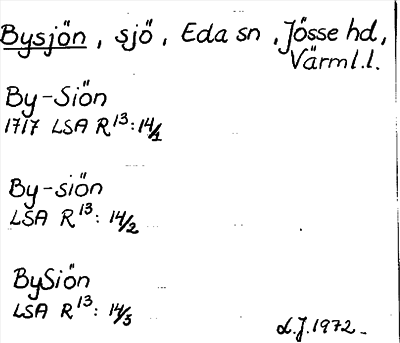 Bysjön, sjö, Eda sn, Jösse hd,
Värml.l.
By-Siön
1717 LSA R¹³:14/1
By-siön
LSA R¹³: 14/2
BySiön
LSA R¹³: 14/3
L.J.1972